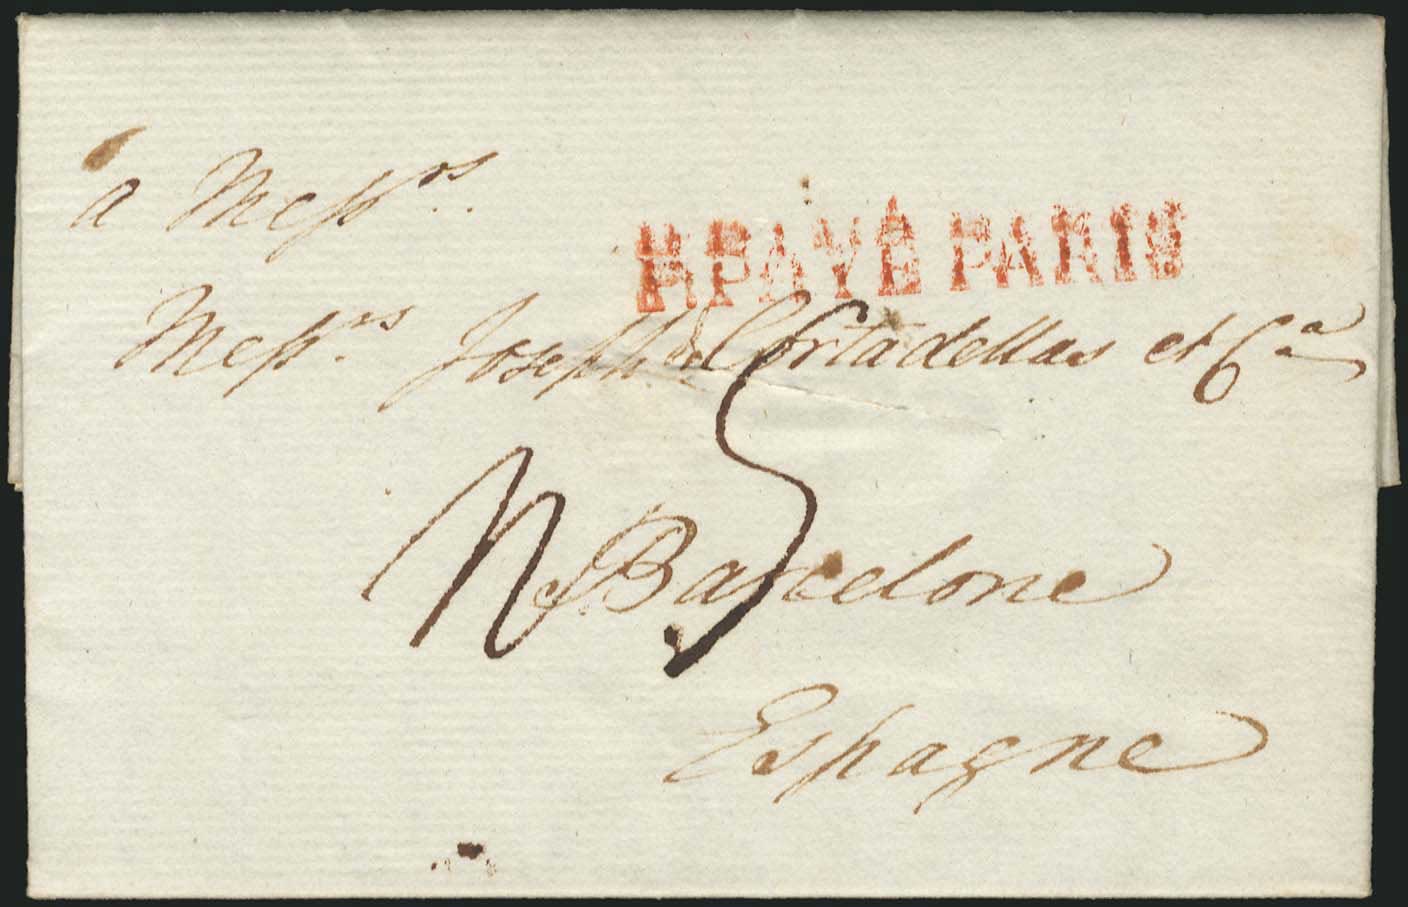 a Messrs.
R PAYÉ PARIS
Messrs. Joseph de Cortadellas et Ca
5
Barcelone
Espagne